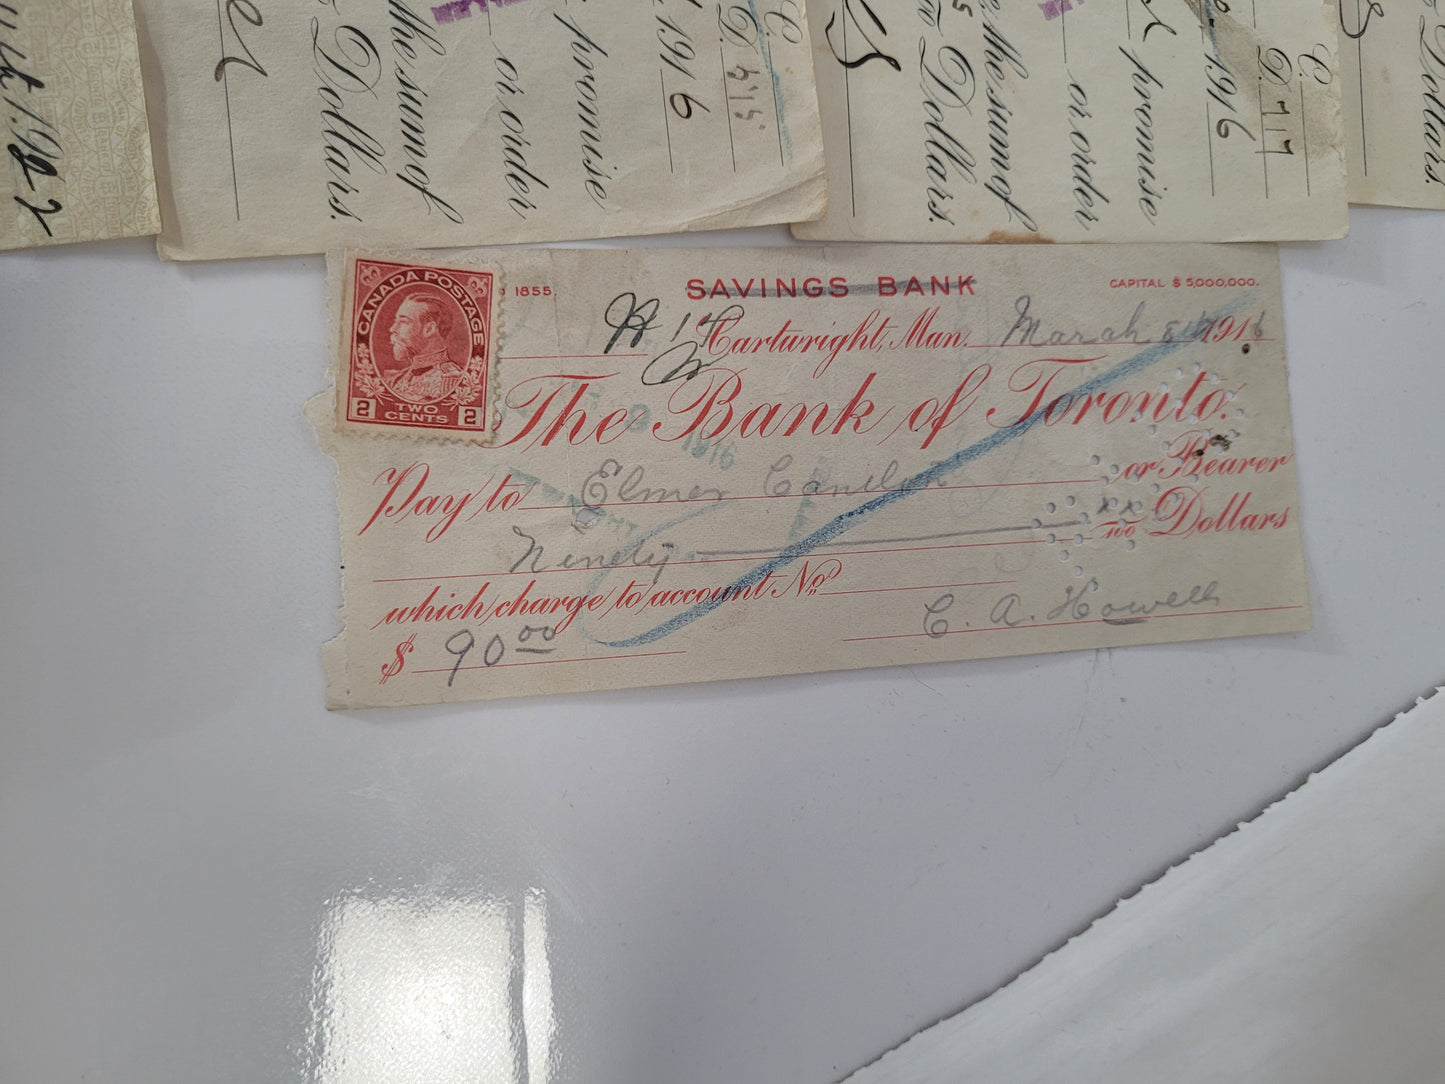 1916
D. 415
or order
promise
the sum of
Dollars.
C.
D. 717
1916
promise
or order
the sum of
Dollars.
Dollars.
CANADA POSTAGE
2 TWO CENTS 2
1855.
SAVINGS BANK
CAPITAL $ 5,000,000.
Cartwright, Man. March 1916
The Bank of Toronto.
1916
Pay to Elmer or Bearer
Ninety xx/100 Dollars
which charge to account No.
C. A. Howell
$ 90 00